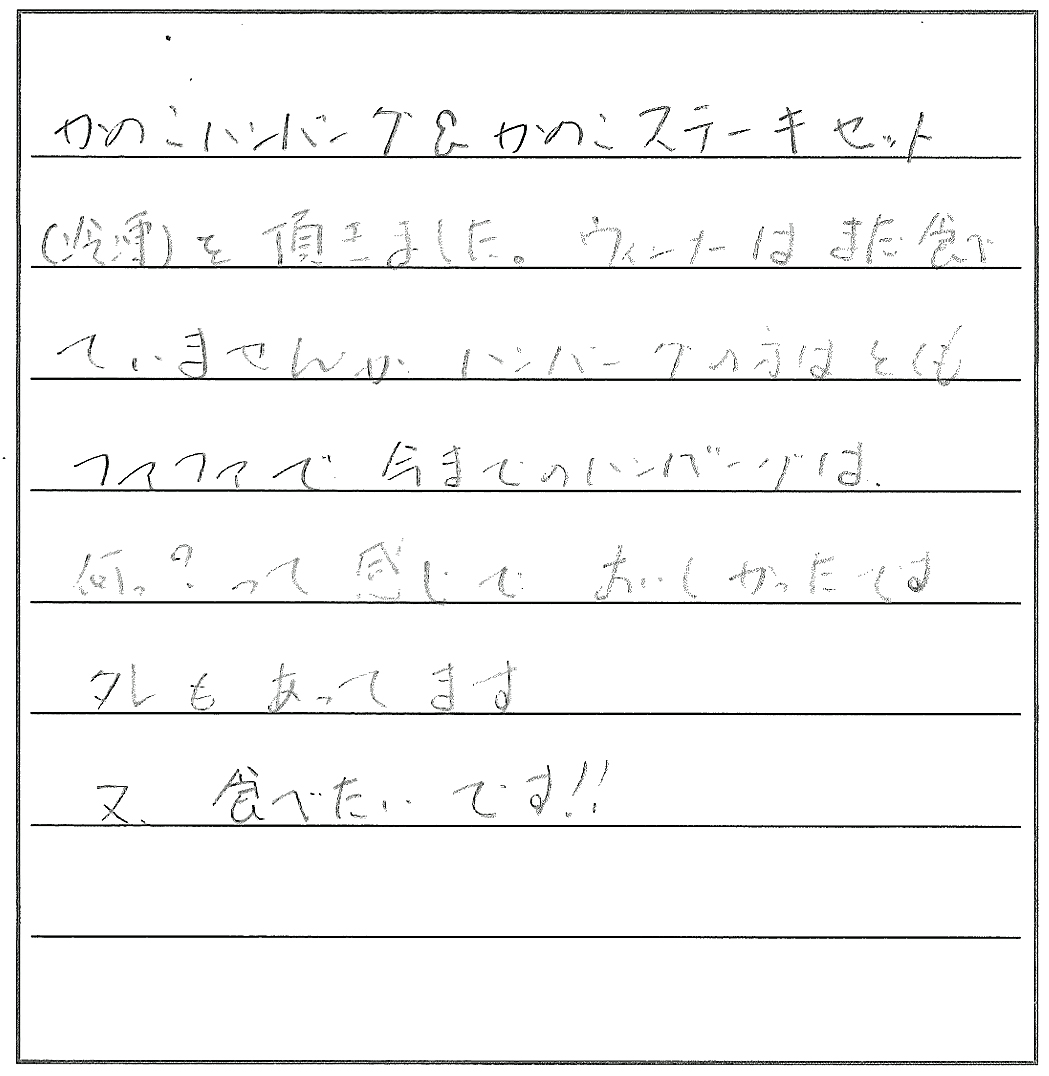 かのこハンバーグ&かのこステーキセット
(冷凍)を頂きました。ウィンナーはまだ食べ
ていませんが ハンバーグの方はとても
フワフワで 今までのハンバーグは、
何っ?って感じで おいしかったです
タレもあってます
又、食べたいです!!